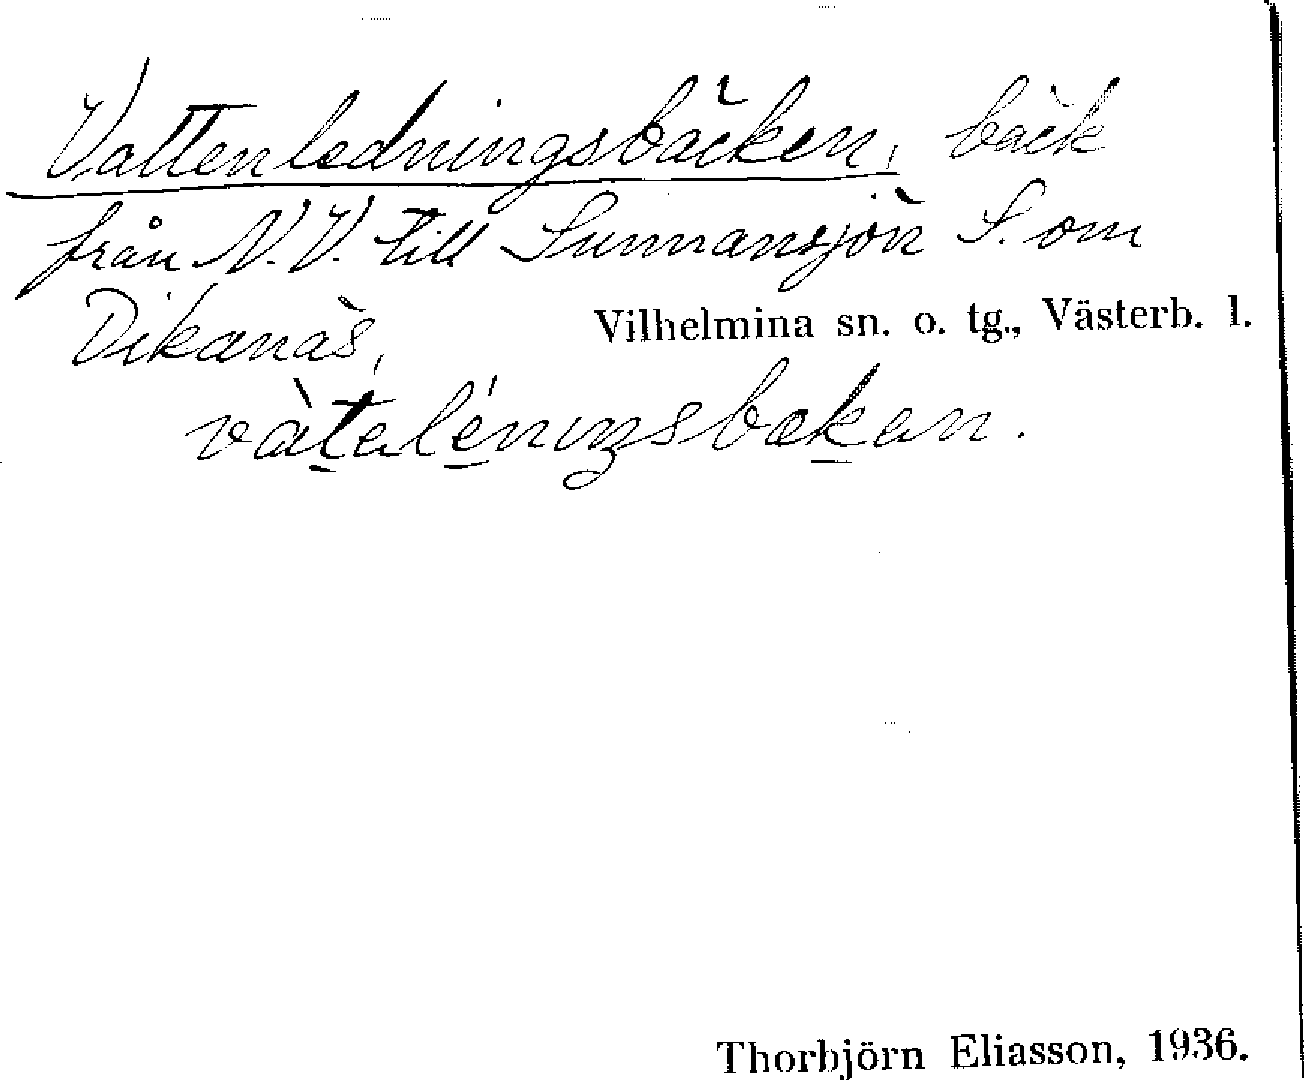 Vattenledningsbäcken, bäck
från N.V. till Sunnansjön S. om
Dikanäs, Vilhelmina sn. o. tg., Västerb. l.
vàtaléningsbækan.
Thorbjörn Eliasson, 1936.